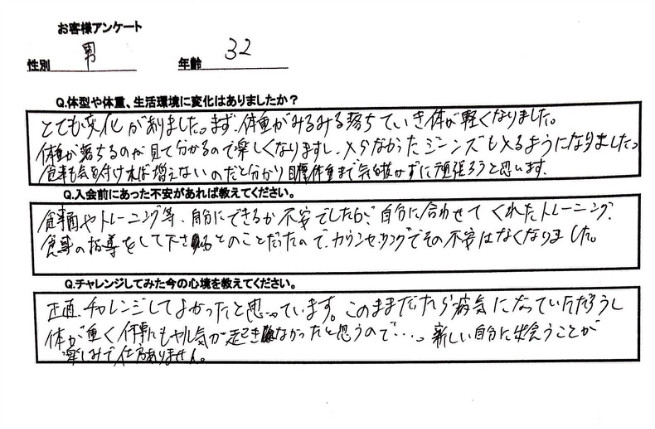 お客様アンケート
性別 男 年齢 32
Q.体型や体重、生活環境に変化はありましたか？
とても変化がありました。まず、体重がみるみる落ちていき体が軽くなりました。
体重が落ちるのが目で分かるので楽しくなりますし、入らなかったジーンズも入るようになりました。
食事も気を付ければ増えないのだと分かり目標体重まで気を抜かずに頑張ろうと思います。
Q.入会前にあった不安があれば教えてください。
食事面やトレーニング等、自分にできるか不安でしたが、自分に合わせてくれたトレーニング、
食事の指導をして下さるとのことだったので、カウンセリングでその不安はなくなりました。
Q.チャレンジしてみた今の心境を教えてください。
正直、チャレンジしてよかったと思っています。このままだったら病気になっていただろうし
体が重く何事にもヤル気が起きなかったと思うので…。新しい自分に出会うことが
楽しみで仕方ありません。